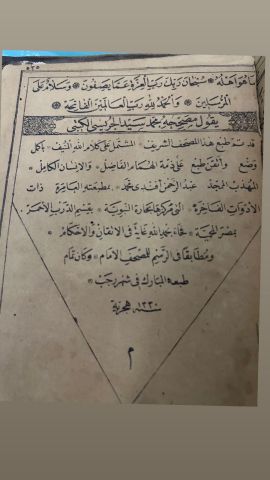 ٥٣٥
ما هو اهله * سبحان ربك رب العزة عما يصفون * وسلام على
المرسلين * والحمد لله رب العالمين الفاتحة *
يقول مصححه محمد سيد الكتبى
قد تم طبع هذا المصحف الشريف * المشتمل على كلام الله المنيف * باكمل
وضع وأتقن طبع على ذمة الهمام الفاضل * والانسان الكامل *
المهذب الممجد عبد الرحمن أفندى محمد * بمطبعته العامرة ذات
الأدوات الفاخرة * التى مركزها بحارة النبوية * بقسم الدرب الأحمر *
بمصر المحمية * فجاء بحمد الله غاية فى الاتقان والاحكام *
ومطابقا فى الرسم للمصحف الامام * وكان تمام
طبعه المبارك فى شهر رجب *
سنة ١٣٣٠ هجرية
م